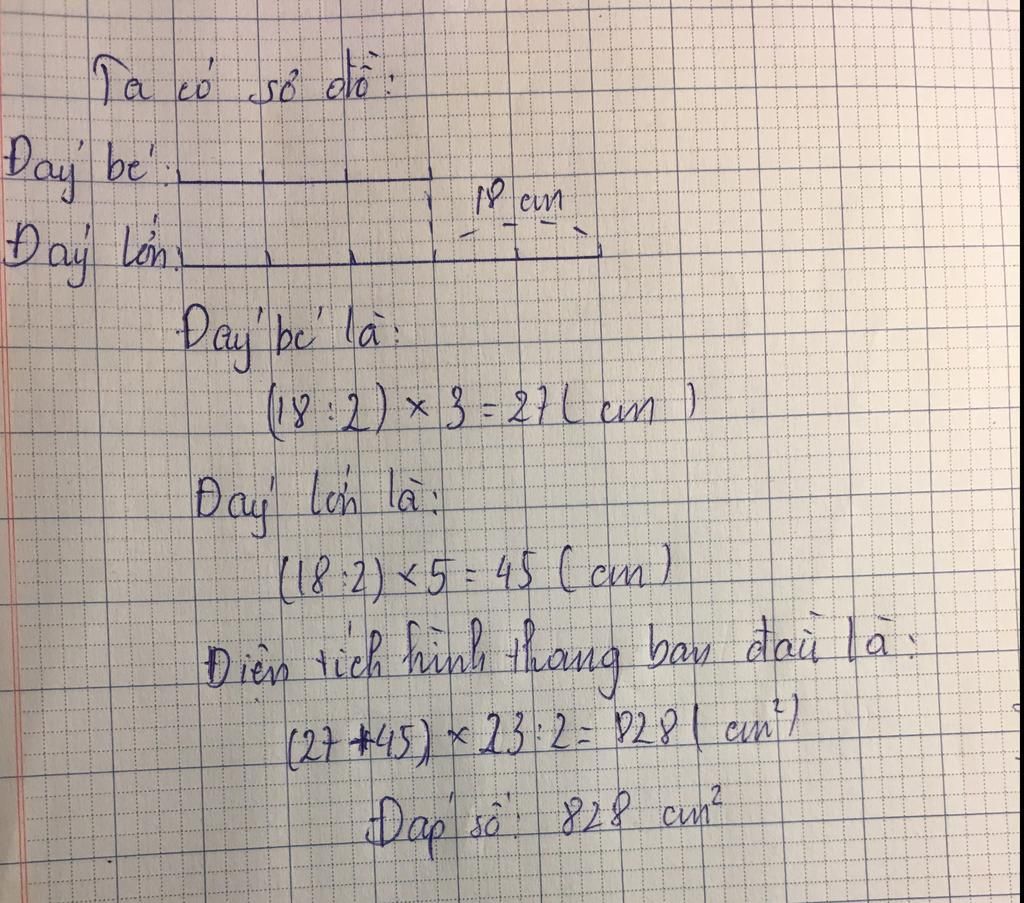 Ta có sơ đồ:
Đáy bé:
18 cm
Đáy lớn:
Đáy bé là:
(18 : 2) × 3 = 27 ( cm )
Đáy lớn là:
(18 : 2) × 5 = 45 ( cm )
Diện tích hình thang ban đầu là:
(27 + 45) × 23 : 2 = 828 ( cm²)
Đáp số: 828 cm²